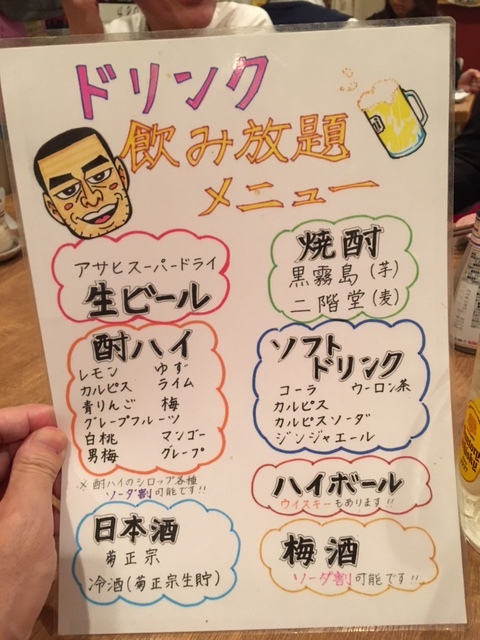 ドリンク
飲み放題
メニュー
アサヒスーパードライ
生ビール
焼酎
黒霧島(芋)
二階堂(麦)
酎ハイ
レモン ゆず
カルピス ライム
青りんご 梅
グレープフルーツ
白桃 マンゴー
男梅 グレープ
※酎ハイのシロップ各種
ソーダ割可能です!!
ソフト
ドリンク
コーラ ウーロン茶
カルピス
カルピスソーダ
ジンジャエール
ハイボール
ウイスキーもあります!!
日本酒
菊正宗
冷酒(菊正宗生貯)
梅酒
ソーダ割可能です!!